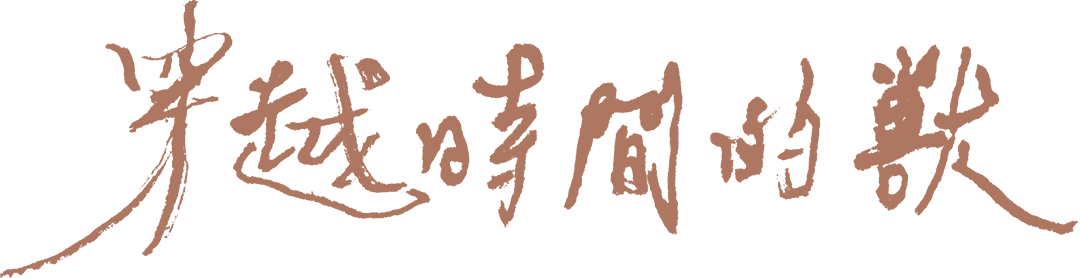 穿越時間的獸